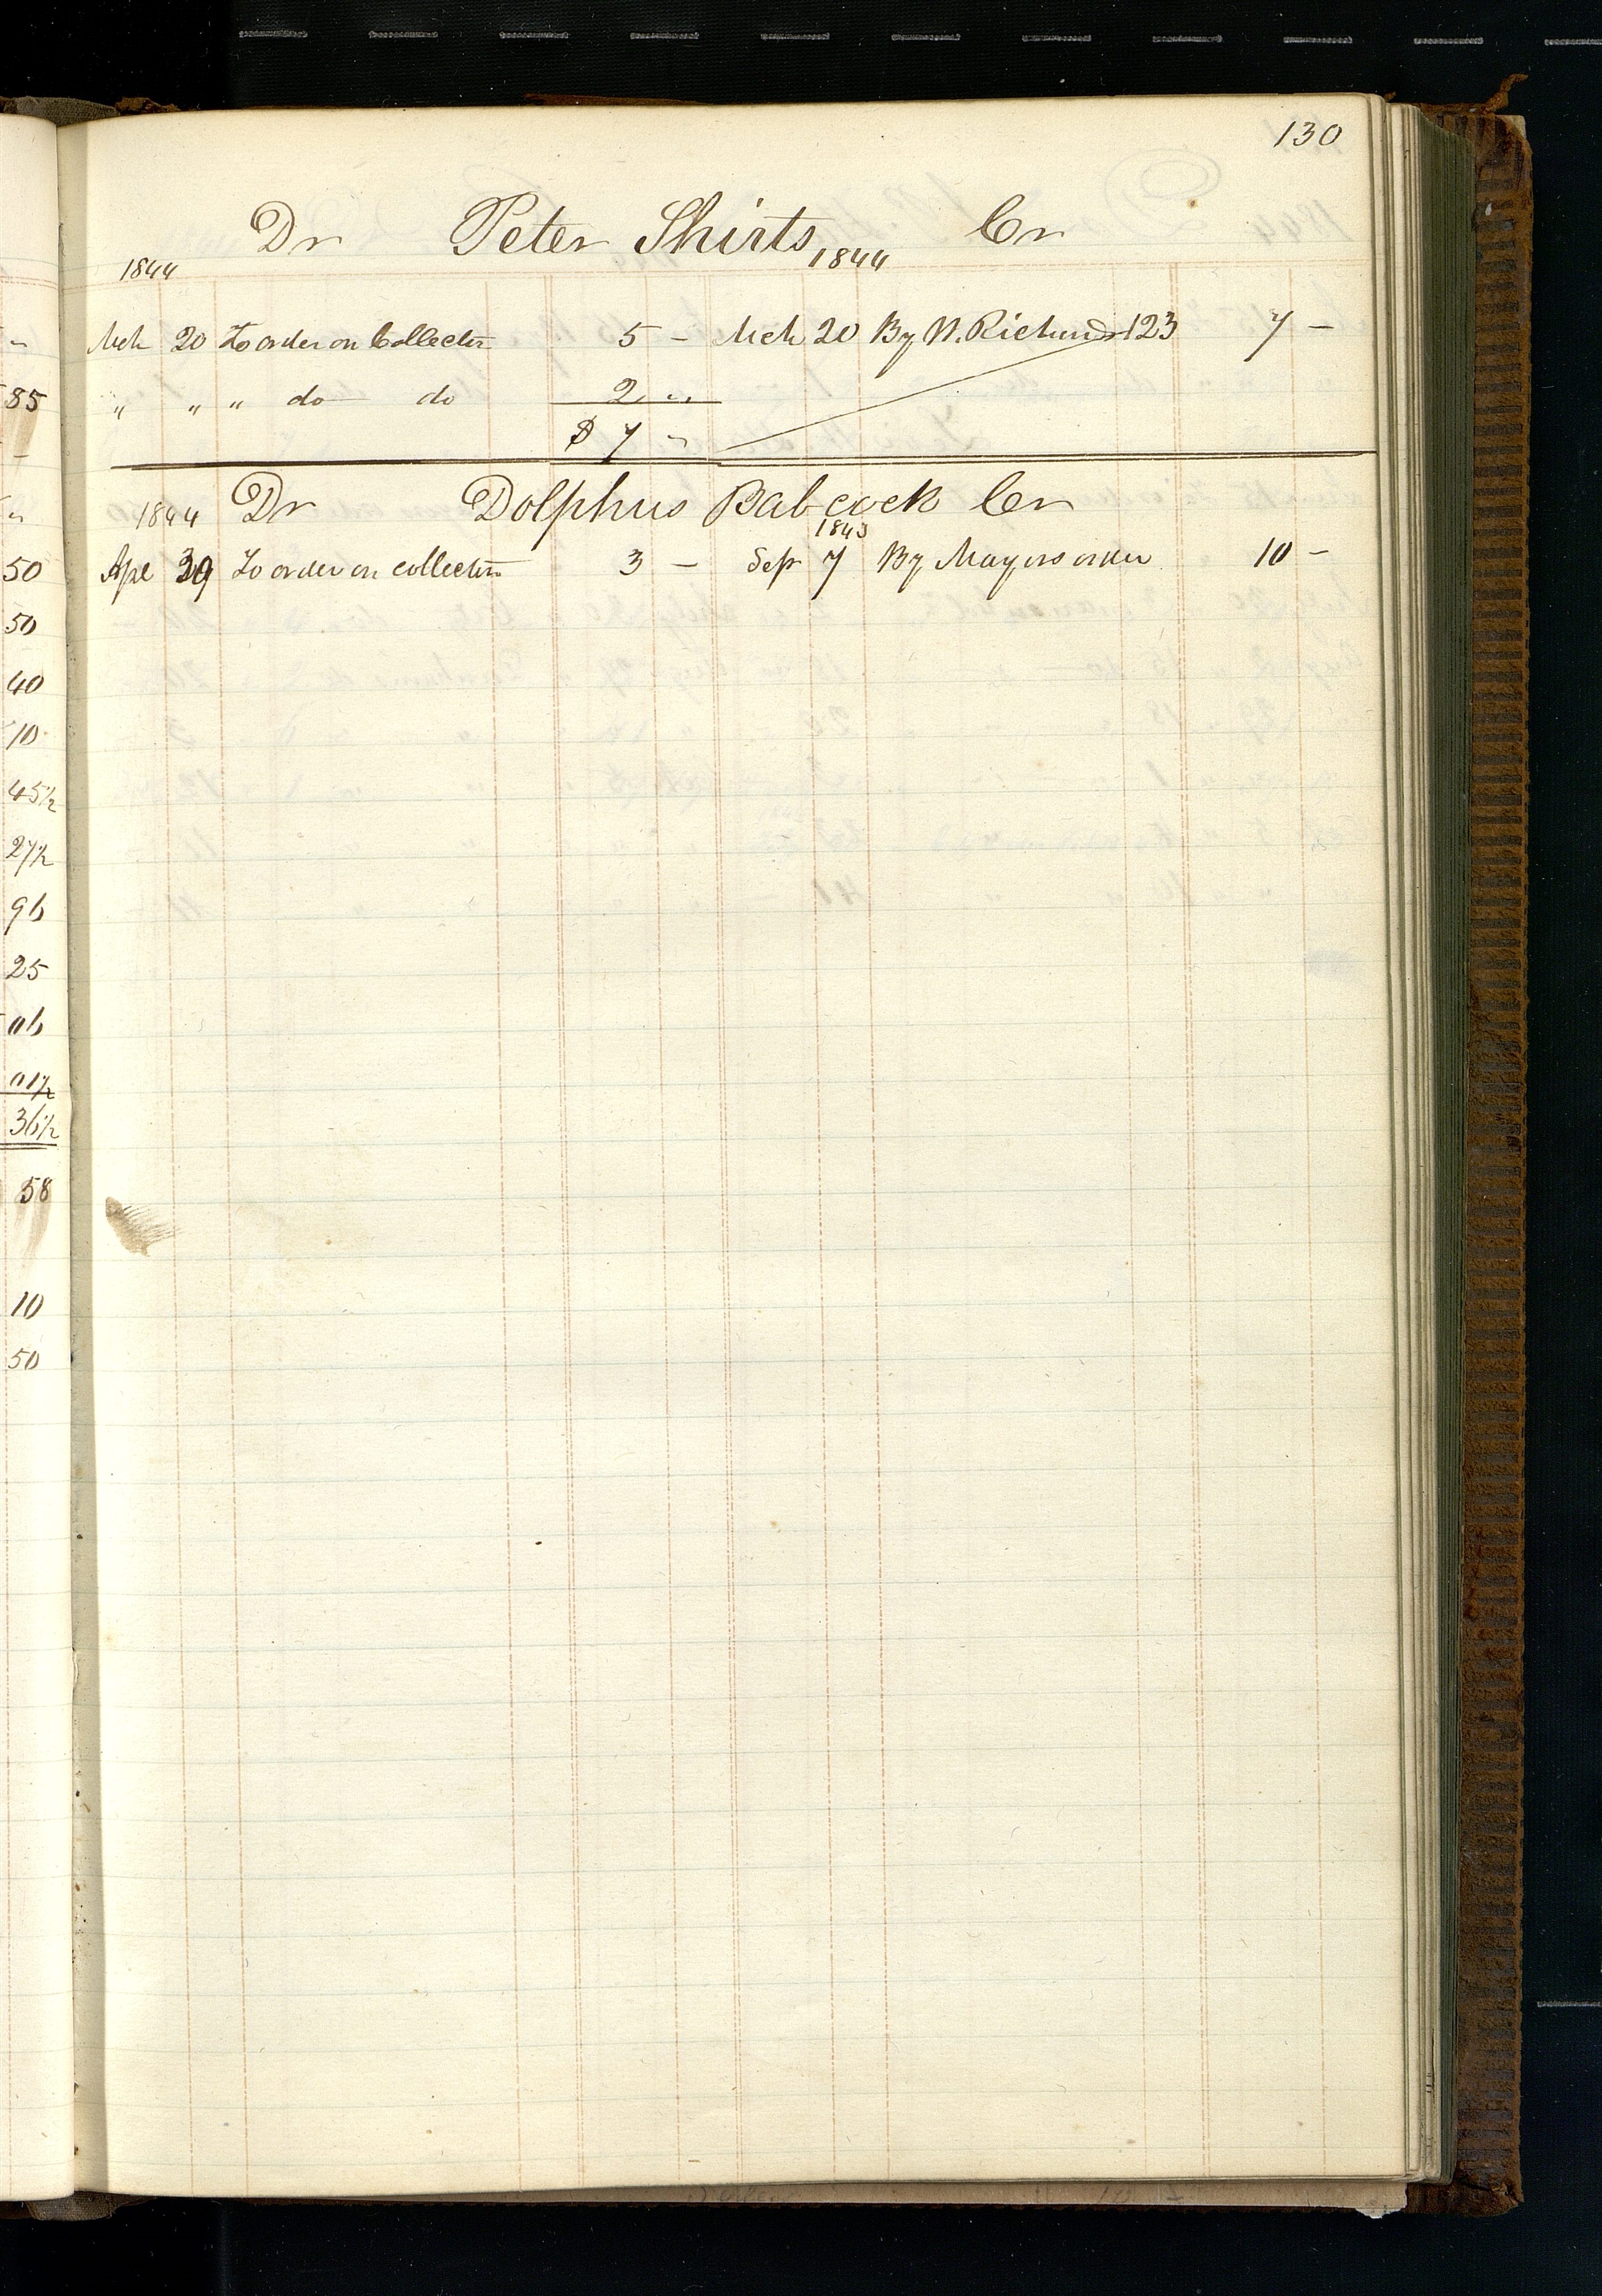 130
Dr Peter Shirts Cr
1844 1844
Mch 20 To order on Collector 5 - Mch 20 By W. Richards 123 7 -
" " " do do 2 "
$ 7 "
1844 Dr Dolphus Babcock Cr
1843
Apl 29 To order on collector 3 - Sep 7 By Mayors order 10 -
"
85
-
"
50
50
40
10
45½
27½
96
25
06
01½
36½
58
10
50